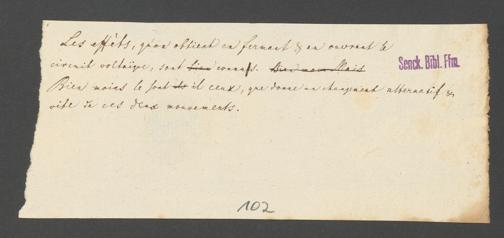 Les effets, qu'on obtient en fermant & en ouvrant le
circuit voltaïque, sont bien connus. Bien moins Mais
Senck. Bibl. Ffm.
Bien moins le sont de il ceux, que donne un changement alternatif &
vite de ces deux mouvements.
102